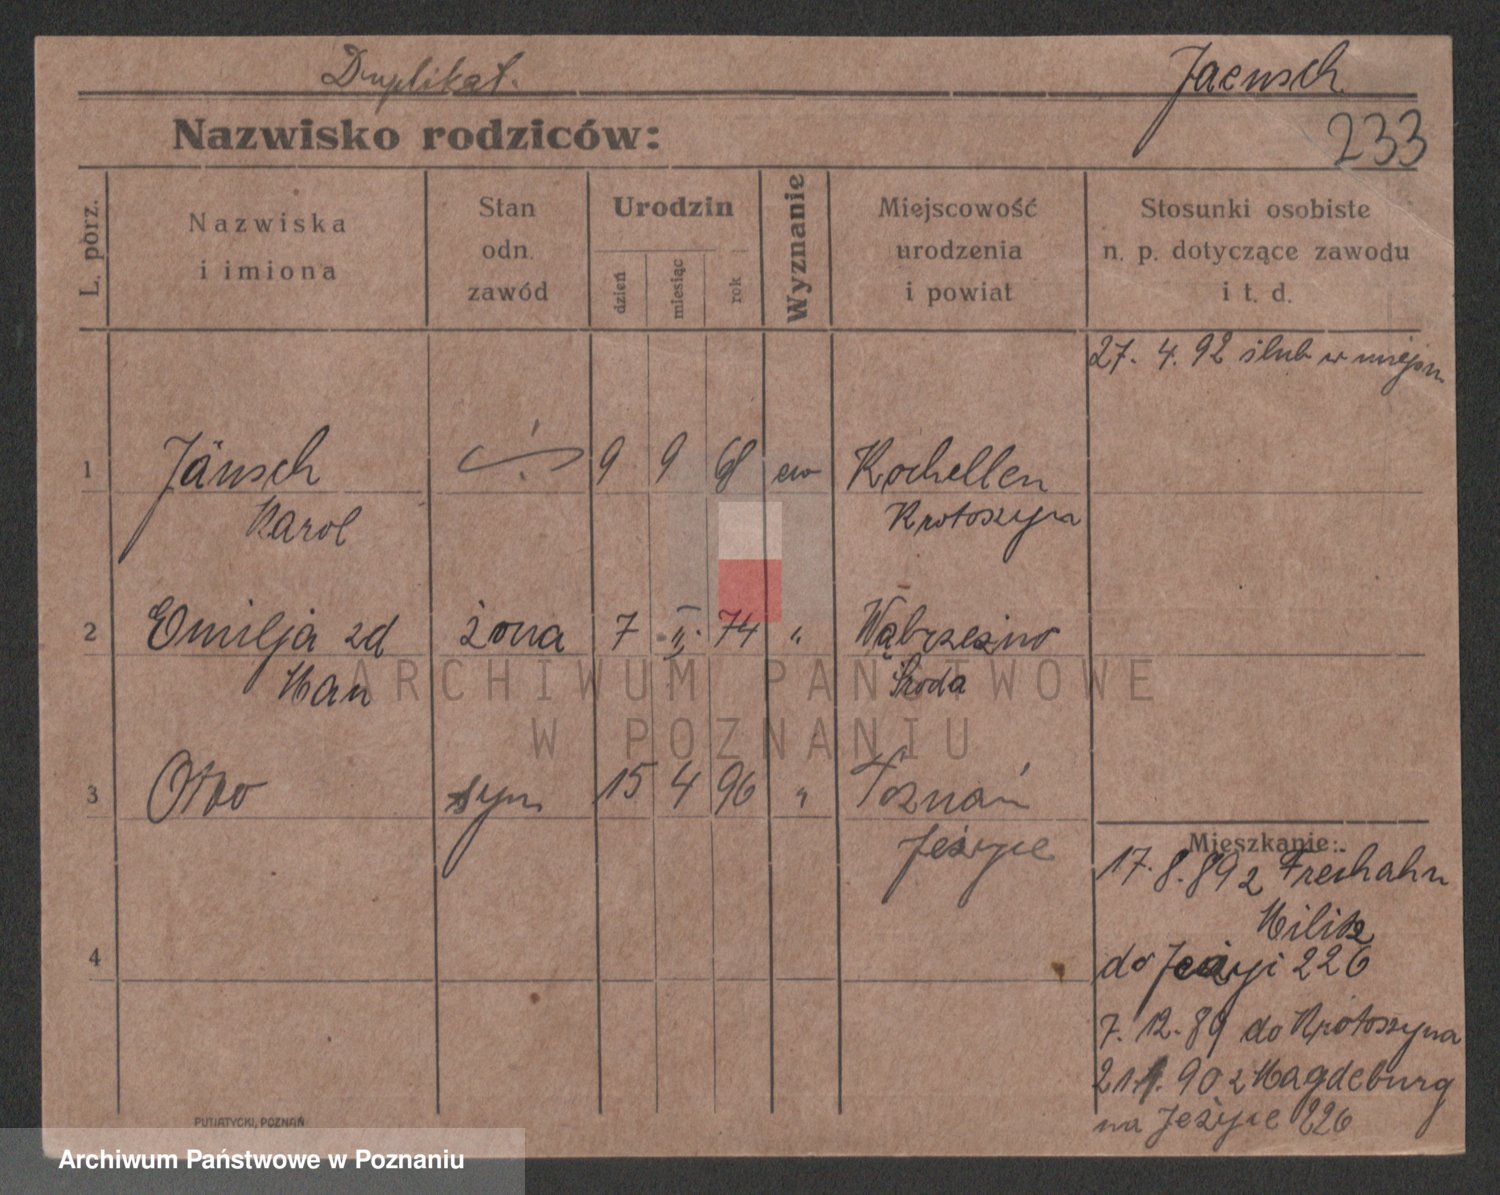 Duplikat.
Jaensch
233
Nazwisko rodziców:
L. porz.
Nazwiska
i imiona
Stan
odn.
zawód
Urodzin
dzień
miesiąc
rok
Wyznanie
Miejscowość
urodzenia
i powiat
Stosunki osobiste
n. p. dotyczące zawodu
i t. d.
27. 4. 92 ślub w miejscu
1 Jänsch 9 9 68 ew Kochellen
Karol Krotoszyn
2 Emilja zd żona 7 II. 74 " Wąbrzeźno
Han Środa
3 Otto syn 15 4 96 " Poznań
Jeżyce
Mieszkanie:
17. 8. 89 z Freihahn
Militz
do Jeżyc 226
4
7. 12. 89 do Krotoszyna
90 z Magdeburg
na Jeżyce 226
PUTIATYCKI, POZNAŃ
ARCHIWUM PAŃSTWOWE
W POZNANIU
Archiwum Państwowe w Poznaniu